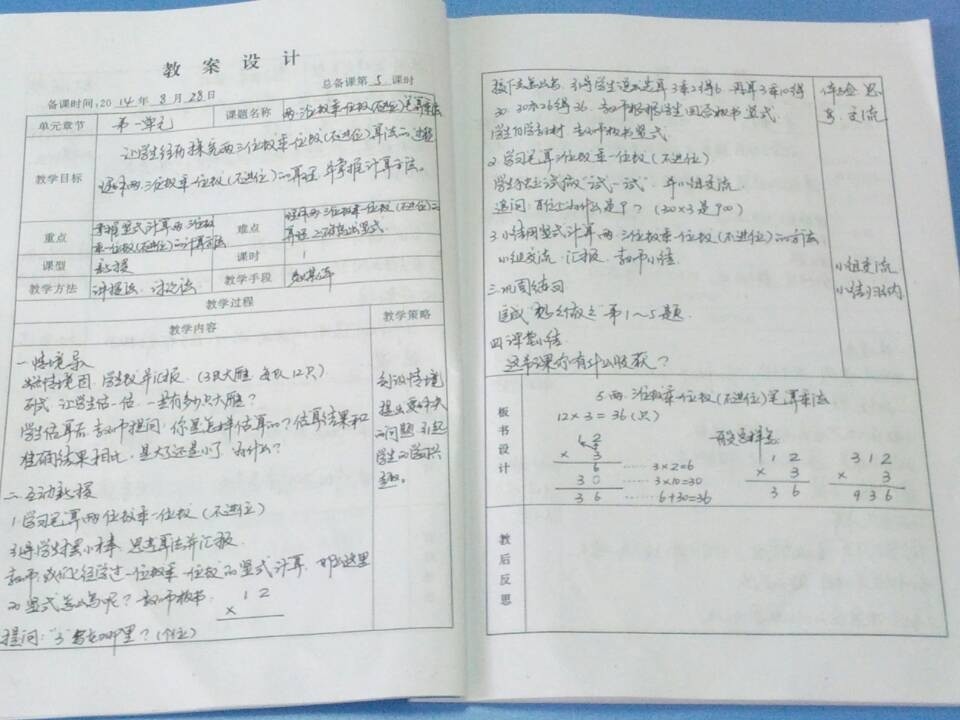 教案设计
总备课第 5 课时
备课时间:2014年8月28日
单元章节 第一单元 课题名称 两、三位数乘一位数(不进位)笔算乘法
教学目标 让学生经历探究两、三位数乘一位数(不进位)算法的过程
理解两、三位数乘一位数(不进位)的算理,并掌握计算方法。
重点 掌握竖式计算两、三位数乘一位数(不进位)的计算方法 难点 理解两、三位数乘一位数(不进位)的算理,正确写出竖式。
课型 新授 课时 1
教学方法 讲授法、讨论法 教学手段
教学过程
教学内容 教学策略
一、情境导
出示情境图,学生叙并汇报。(3只大雁 每队12只)
列式,让学生估一估,一共有多少只大雁?
学生估算后,教师提问:你是怎样估算的?估算结果和
准确结果相比,是大了还是小了,为什么?
创设情境
提出数学
的问题,引起
学生的学习兴
趣。
二、互动新授
1.学习笔算两位数乘一位数(不进位)
引导学生摆小棒,思考算法并汇报。
教师:我们已经学过一位数乘一位数的竖式计算,那么这里
的竖式怎么写呢?教师板书 12
×
提问:"3"写在哪里?(个位)
接下去怎么写,引导学生说出是算3乘2得6,再算3乘10得
30,30加6得36,教师根据学生回答板书竖式。
学生自学教材,教师板书竖式。
2.学习笔算三位数乘一位数(不进位)
学生独立试做"试一试",并小组交流。
追问:百位上为什么是9?(300×3是900)
3.小结用竖式计算两、三位数乘一位数(不进位)的方法
小组交流,汇报,教师小结。
三、巩固练习
完成"想想做做"第1~5题
四、课堂小结
这节课你有什么收获?
考、交流
小组交流
小结归纳
板书设计
5.两、三位数乘一位数(不进位)笔算乘法
12×3=36(只)
一般这样写
12
× 3
6 ……3×2=6
30 ……3×10=30
36 ……6+30=36
12
× 3
36
312
× 3
936
教后反思